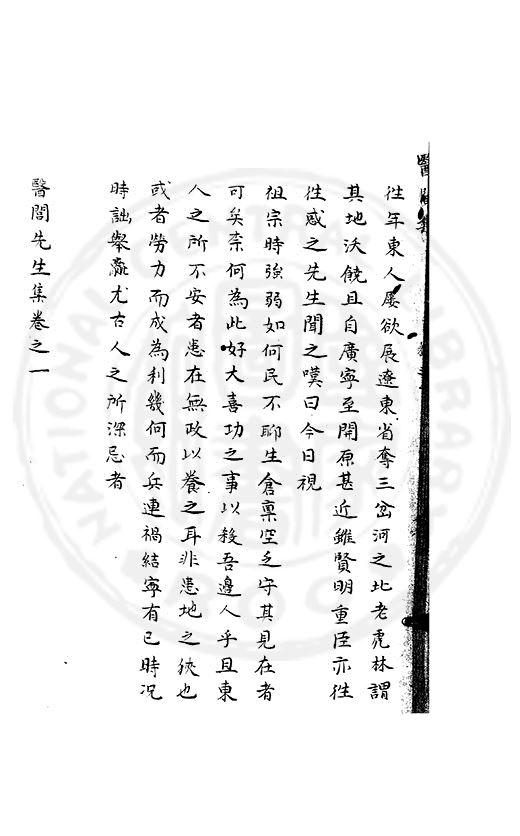 醫閭
徃年東人屡欲展遼東省奪三岔河之北老虎林謂
其地沃饒且自廣寧至開原甚近雖賢明重臣亦徃
徃惑之先生聞之嘆曰今日視
祖宗時強弱如何民不聊生倉廩空乏守其見在者
可矣柰何為此好大喜功之事以殺吾邊人乎且東
人之所不安者患在無政以養之耳非患地之狹也
或者勞力而成為利幾何而兵連禍結寧有已時况
時詘舉羸尤古人之所深忌者
醫閭先生集卷之一